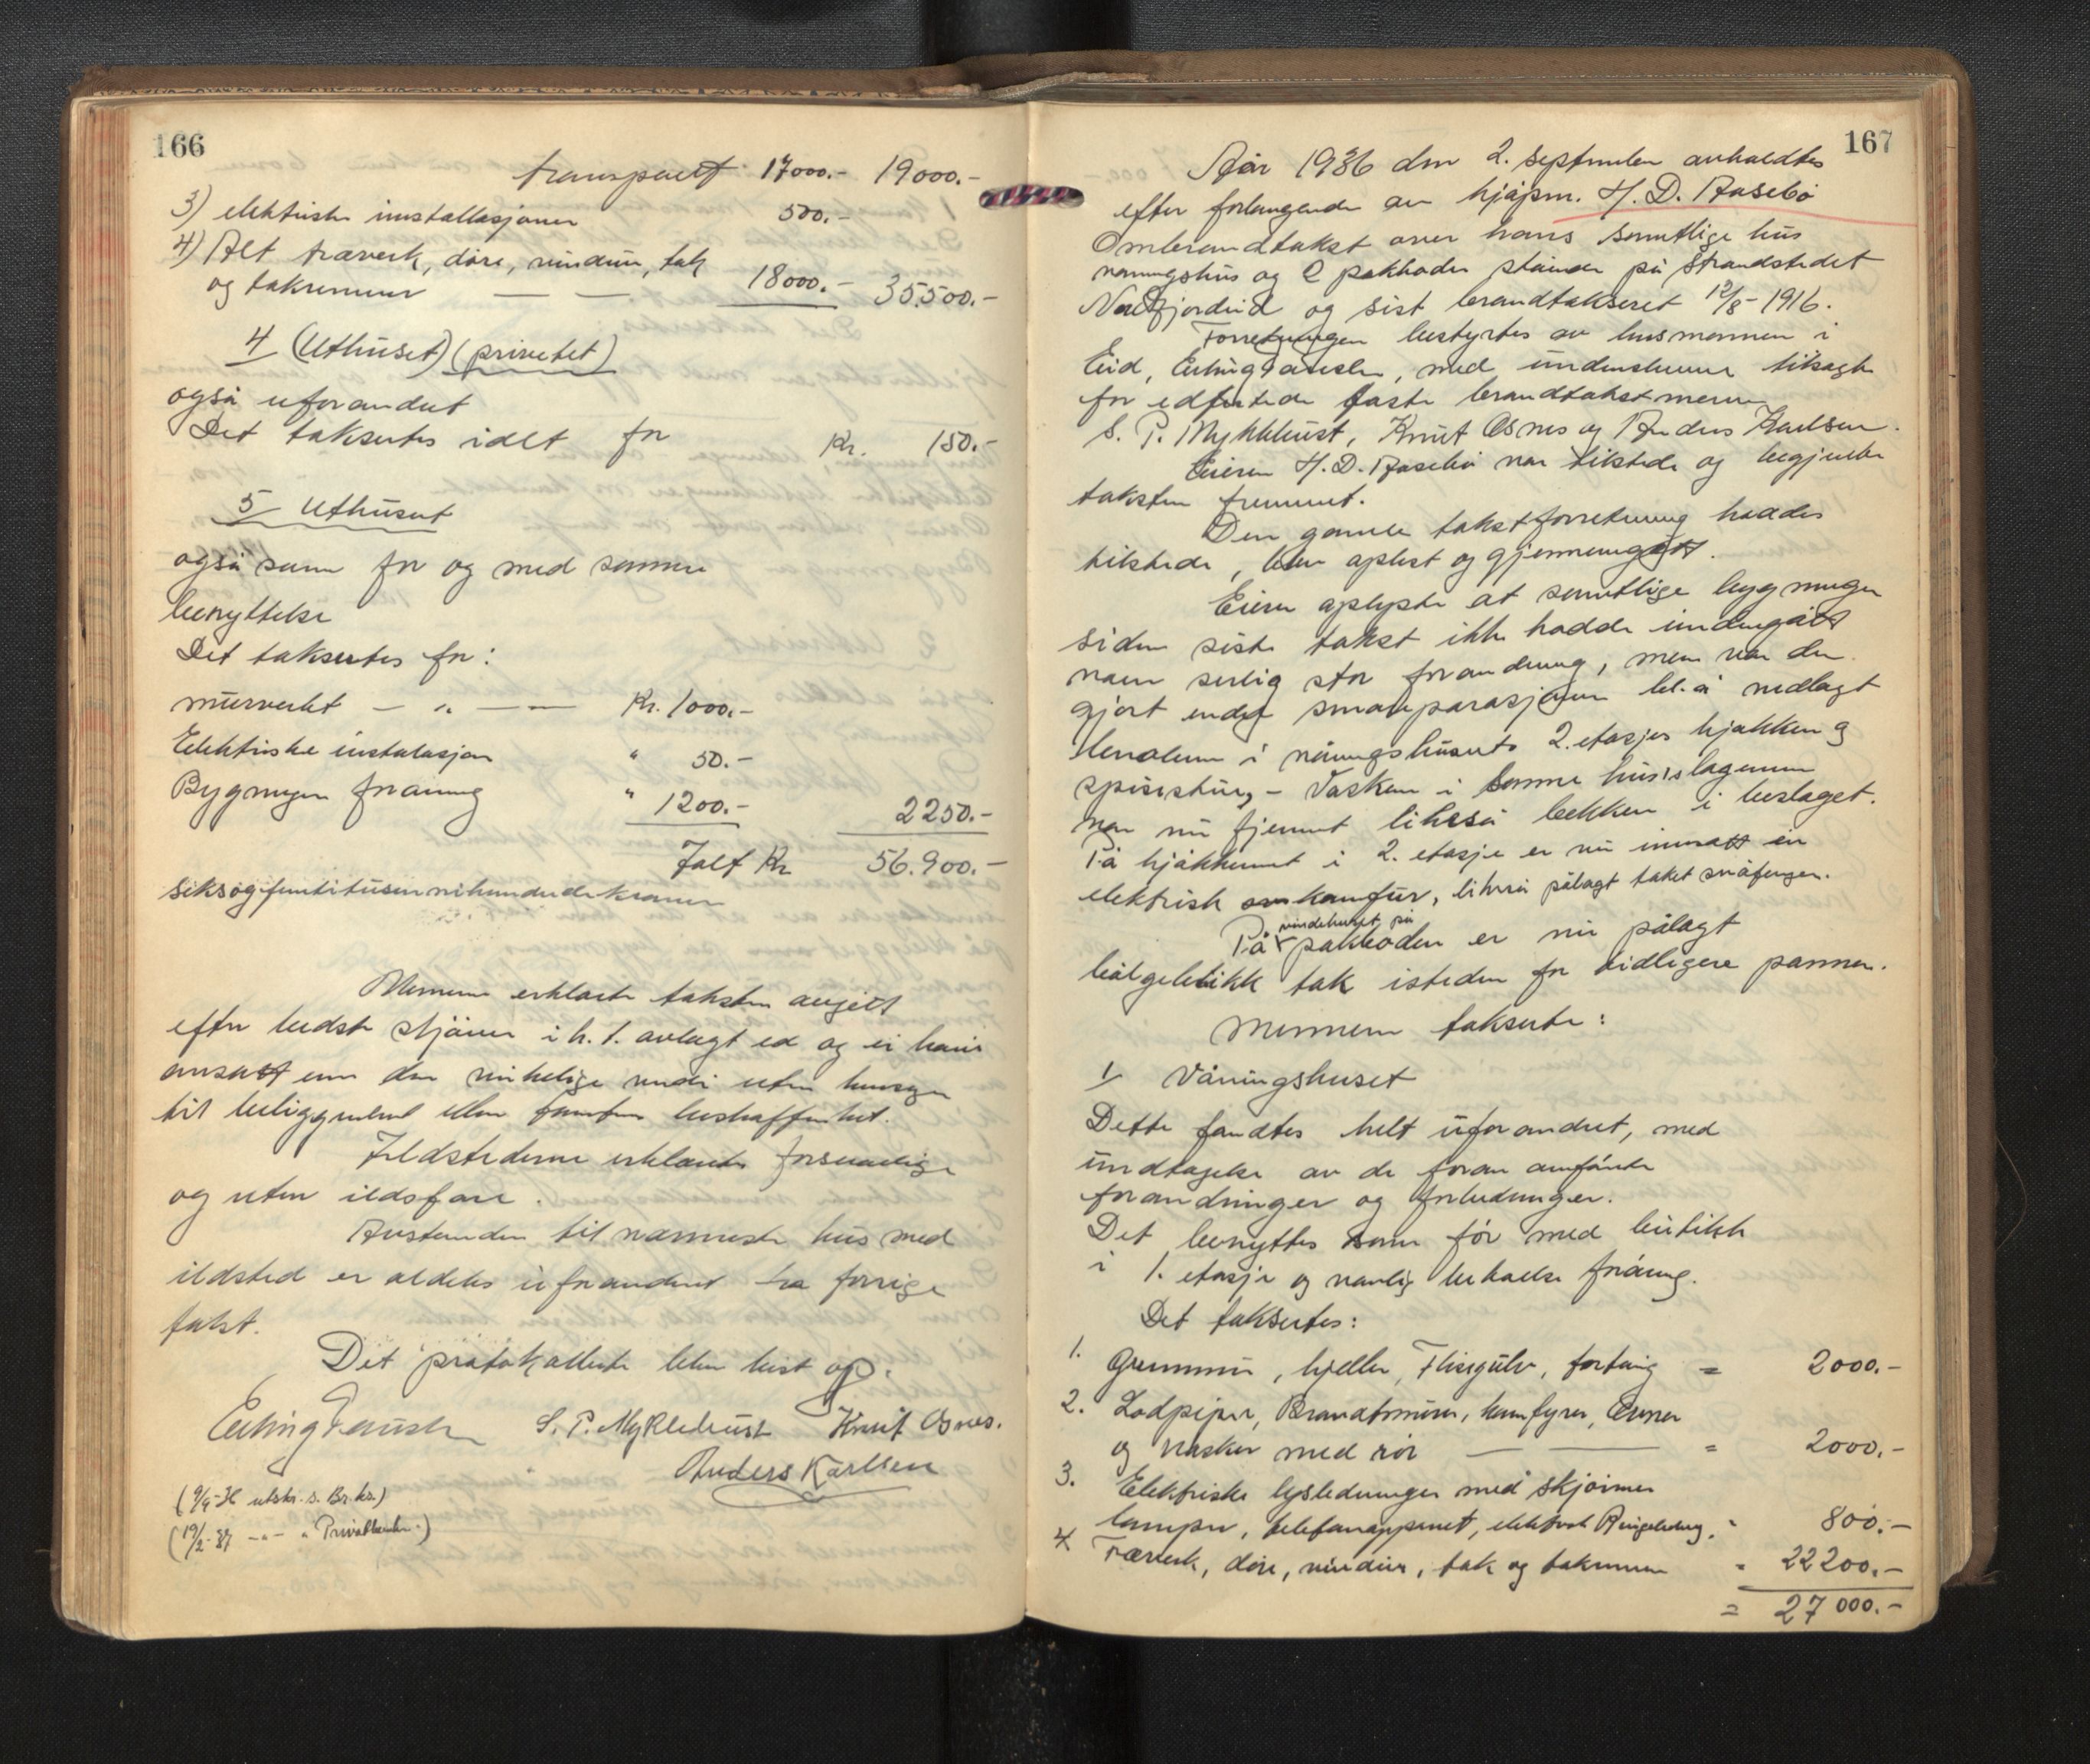 166
transport 17000.- 19000.-
3) elektriske innstallasjoner 500.-
4) Alt træverk, døre, vinduer, tak
og takrenner — — 18000.- 35.500.-
4/ (Uthuset) (privetet)
også uforandret
Det taksertes idet for Kr. 150.-
5/ Uthuset
også som før og med samme
benyttelse
Det taksertes for:
murverket — " — — Kr. 1000.-
Elektriske instalasjon " 50.-
Bygningen forøvrig " 1200.- 2250.-
Ialt Kr 56.900.-
seksogfemtitusennihundredekroner
Mennene erklærte taksten avgitt
efter bedste skjønn i h. t. avlagt ed og ei høiere
ansatt enn den virkelige verdi uten hensyn
til beliggenhet eller tomtens beskaffenhet.
Ildstederne erklærtes forsvarlige
og uten ildsfare.
Avstanden til nærmeste hus med
ildsted er aldeles uforandret fra forrige
takst.
Det protokollerte blev lest op.
Erling Fauske S. P. Myklebust Knut Osnes.
Anders Karlsen
(9/9-36 utskr. s. Br.ks.)
(19/2-37 -"- " Privatbanken.)
167
År 1936 den 2. september avholdtes
efter forlangende av kjøpm. H. D. Aasebø
Ombrandtakst over hans samtlige hus
våningshus og 2 pakkboder stående på strandstedet
Nordfjordeid og sist brandtakseret 12/8-1916.
Forretningen bestyrtes av lensmannen i
Eid, Erling Fauske, med undenstevne tilsagte
for edfestede faste brandtakstmenn
S. P. Myklebust, Knut Osnes og Anders Karlsen.
Eieren H. D. Aasebø var tilstede og begjærte
taksten fremmet.
Den gamle takstforretning haddes
tilstede, blev oplest og gjennemgått.
Eieren oplyste at samtlige bygninger
siden siste takst ikke hadde undergått
noen serlig stor forandring, men var der
gjort endel småreparasjoner bl. a. nedlagt
lenoleum i våningshusets 2. etasjes kjøkken og
spisestue, – Vasken i samme husis lagerrum
var nu fjernet likeså bekken i beslaget.
På kjøkkenet i 2. etasje er nu innsatt en
elektrisk komfur, likeså pålagt taket snøfanger.
På vindehuset på pakkboden er nu pålagt
bølgeblikk tak isteden for tidligere panner.
Mennene takserte:
1/ Våningshuset
Dette fandtes helt uforandret, med
undtagelse av de foran anførte
forandringer og forbedringer.
Det benyttes som før med butikk
i 1. etasje og vanlig bekvelse forøvrig.
Det taksertes:
1. Grunnmur, kjeller, Flisegulv, fortaug = 2000.-
2. Lodpiper, Brandtmurer, kamfyrer, Ovner
og vasker med rør — — = 2000.-
3. Elektriske lysledninger med skjærmer
lamper, telefonapparat, elektrisk Ringeledning " 800.-
4 Træverk, døre, vinduer, tak og takrenner " 22200.-
= 27000.-